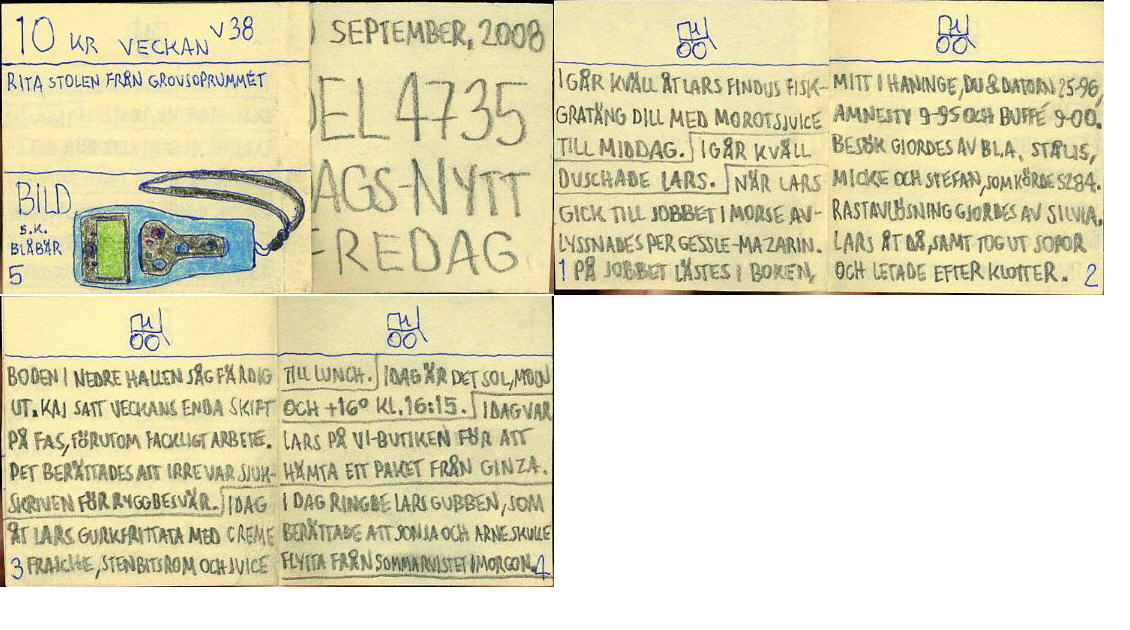 10 KR VECKAN V38
RITA STOLEN FRÅN GROVSOPRUMMET
BILD
S.K.
BLÅBÄR
5
) SEPTEMBER, 2008
DEL 4735
AGS-NYTT
FREDAG
I GÅR KVÄLL ÅT LARS FINDUS FISK-
GRATÄNG DILL MED MOROTSJUICE
TILL MIDDAG. I GÅR KVÄLL
DUSCHADE LARS. NÄR LARS
GICK TILL JOBBET I MORSE AV-
LYSSNADES PER GESSLE-MAZARIN.
1 PÅ JOBBET LÄSTES I BOKEN,
MITT I HANINGE, DU & DATORN 25-96,
AMNESTY 9-95 OCH BUFFÉ 9-00.
BESÖK GJORDES AV BL.A. STÅLIS,
MICKE OCH STEFAN, SOM KÖRDE S284.
RASTAVLÖSNING GJORDES AV SILVIA.
LARS ÅT DÅ, SAMT TOG UT SOPOR
OCH LETADE EFTER KLOTTER. 2
BODEN I NEDRE HALLEN SÅG FÄRDIG
UT. KAJ SATT VECKANS ENDA SKIFT
PÅ FAS, FÖRUTOM FACKLIGT ARBETE.
DET BERÄTTADES ATT IRRE VAR SJUK-
SKRIVEN FÖR RYGGBESVÄR. I DAG
ÅT LARS GURKFRITTATA MED CREME
3 FRAICHE, STENBITSROM OCH JUICE
TILL LUNCH. I DAG ÄR DET SOL, MOLN
OCH +16° KL. 16:15. I DAG VAR
LARS PÅ VI-BUTIKEN FÖR ATT
HÄMTA ETT PAKET FRÅN GINZA.
I DAG RINGDE LARS GUBBEN, SOM
BERÄTTADE ATT SONJA OCH ARNE SKULLE
FLYTTA FRÅN SOMMARVISTET I MORGON. 4